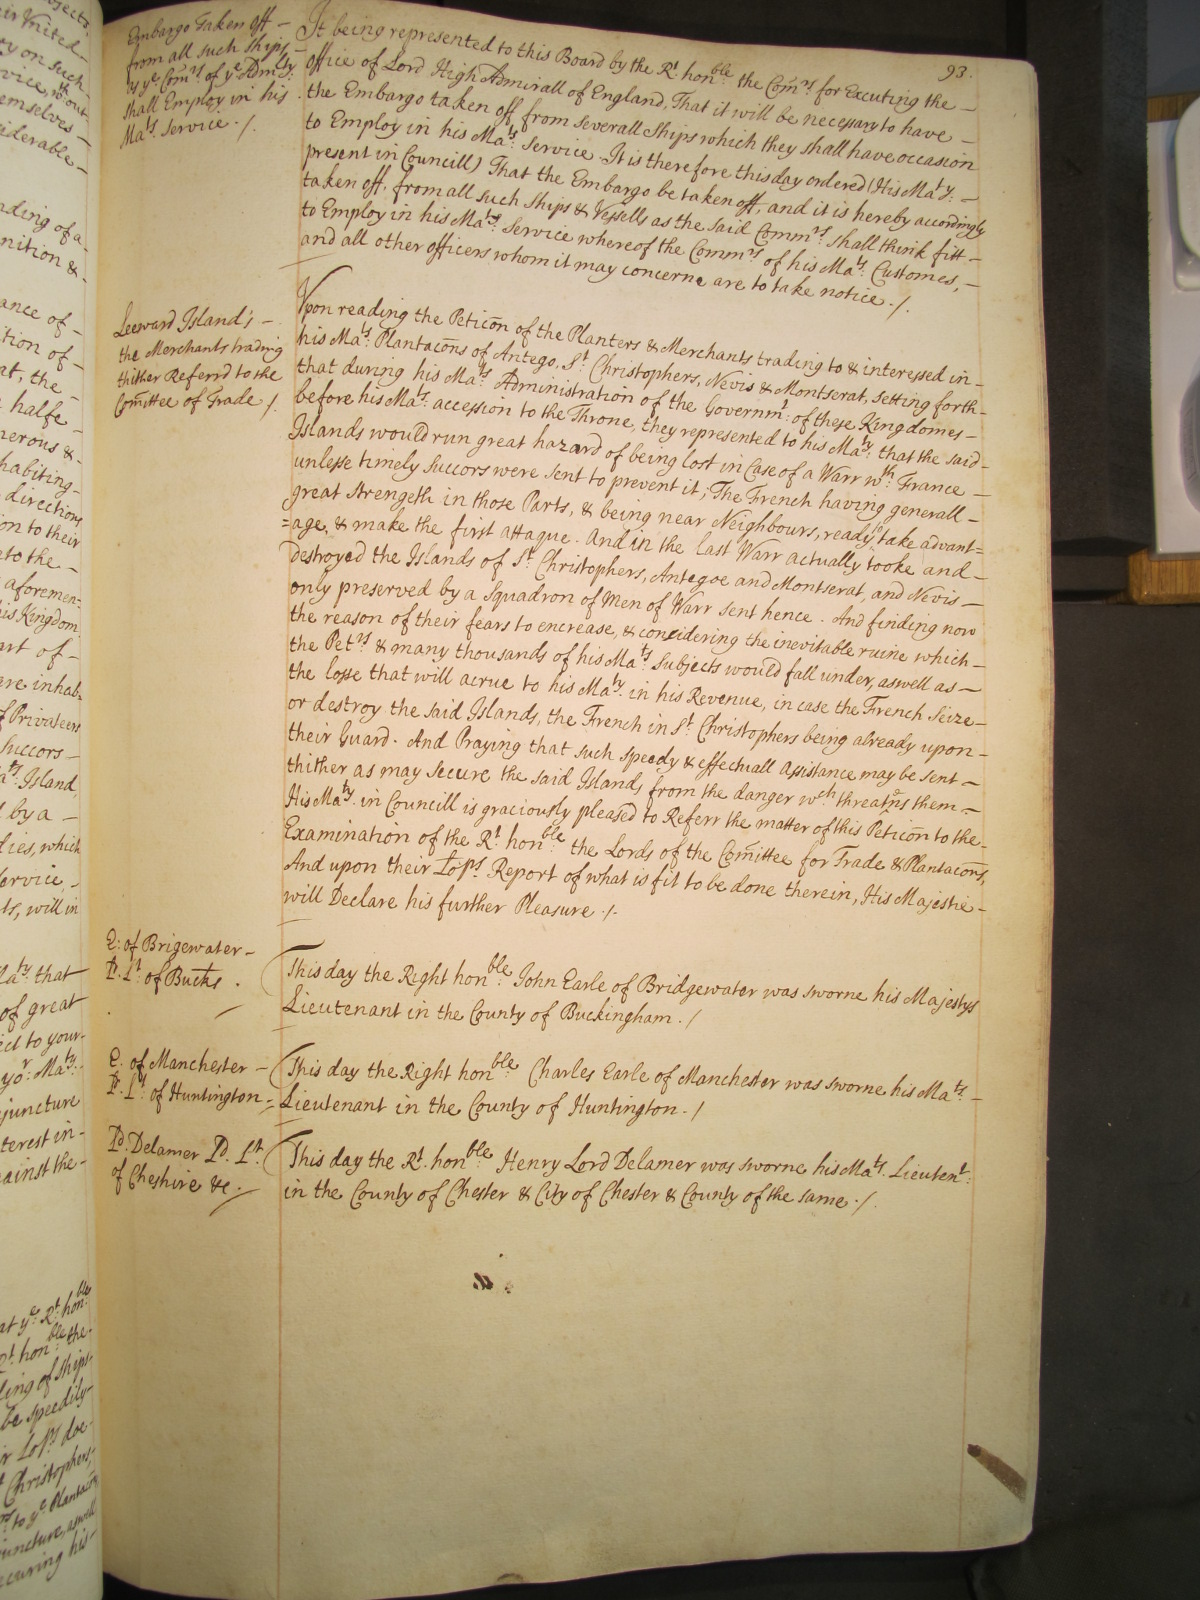 93.
Embargo Taken off –
from all such ships –
as yᵉ Com̃ʳˢ of yᵉ Admˡᵗʸ:
shall Employ in his
Maᵗˢ. Service . /.
It being represented to this Board by the Rᵗ honᵇˡᵉ the Com̃ʳˢ for Excuting the –
office of Lord High Admirall of England, That it will be necessary to have –
the Embargo taken off, from severall Ships which they shall have occasion
to Employ in his Maᵗˢ: Service . It is therefore this day ordered (His Maᵗʸ: –
present in Councill) That the Embargo be taken off, and it is hereby accordingly
taken off, from all such Ships & Vessells as the said Commʳˢ: shall think fitt –
to Employ in his Maᵗˢ: Service whereof the Commʳˢ of his Maᵗˢ: Customes, –
and all other officers whom it may concerne are to take notice . /.
Leeward Island's –
the Merchants trading
thither Referrd to the
Com̃ittee of Trade /.
Upon reading the Petic̃on of the Planters & Merchants trading to & interessed in –
his Maᵗˢ: Plantac̃ons of Antego, Sᵗ Christophers, Nevis & Montserat, setting forth –
that during his Maᵗˢ Administration of the Governmᵗ: of these Kingdomes –
before his Maᵗˢ: accession to the Throne, they represented to his Maᵗʸ: that the said –
Islands would run great hazard of being lost in Case of a Warr wᵗʰ: France –
unlesse timely Succors were sent to prevent it; The French having generall –
great Strength in those Parts, & being near Neighbours, ready ᵗᵒ take advant=
=age, & make the first attaque . And in the last Warr actually tooke and –
destroyed the Islands of Sᵗ Christophers, Antegoe and Montserat, and Nevis –
only preserved by a Squadron of Men of Warr sent hence . And finding now
the reason of their fears to encrease, & considering the inevitable ruine which –
the Petʳˢ & many thousands of his Maᵗˢ: Subjects would fall under, aswell as –
the losse that will acrue to his Maᵗʸ: in his Revenue, in case the French Seize –
or destroy the said Islands, the French in Sᵗ: Christophers being already upon –
their Guard . And Praying that such speedy & effectuall Assistance may be sent –
thither as may secure the said Islands from the danger wᶜʰ threatᵉns them –
His Maᵗʸ: in Councill is graciously pleased to Referr the matter of this Petic̃on to the –
Examination of the Rᵗ honᵇˡᵉ the Lords of the Com̃ittee for Trade & Plantac̃ons,
And upon their Loᵖˢ Report of what is fit to be done therein, His Majestie –
will Declare his further Pleasure . /.
E: of Brigewater –
Lᵈ. Lᵗ of Bucks .
This day the Right honᵇˡᵉ: John Earle of Bridgewater was sworne his Majestys
Lieutenant in the County of Buckingham . /
E. of Manchester –
Lᵈ. Lᵗ: of Huntington –
This day the Right honᵇˡᵉ: Charles Earle of Manchester was sworne his Maᵗˢ. –
Lieutenant in the County of Huntington . /
Lᵈ. Delamer Lᵈ. Lᵗ.
of Cheshire &c .
This day the Rᵗ. honᵇˡᵉ Henry Lord Delamer was sworne his Maᵗˢ. Lieutenᵗ:
in the County of Chester & City of Chester & County of the same . /.